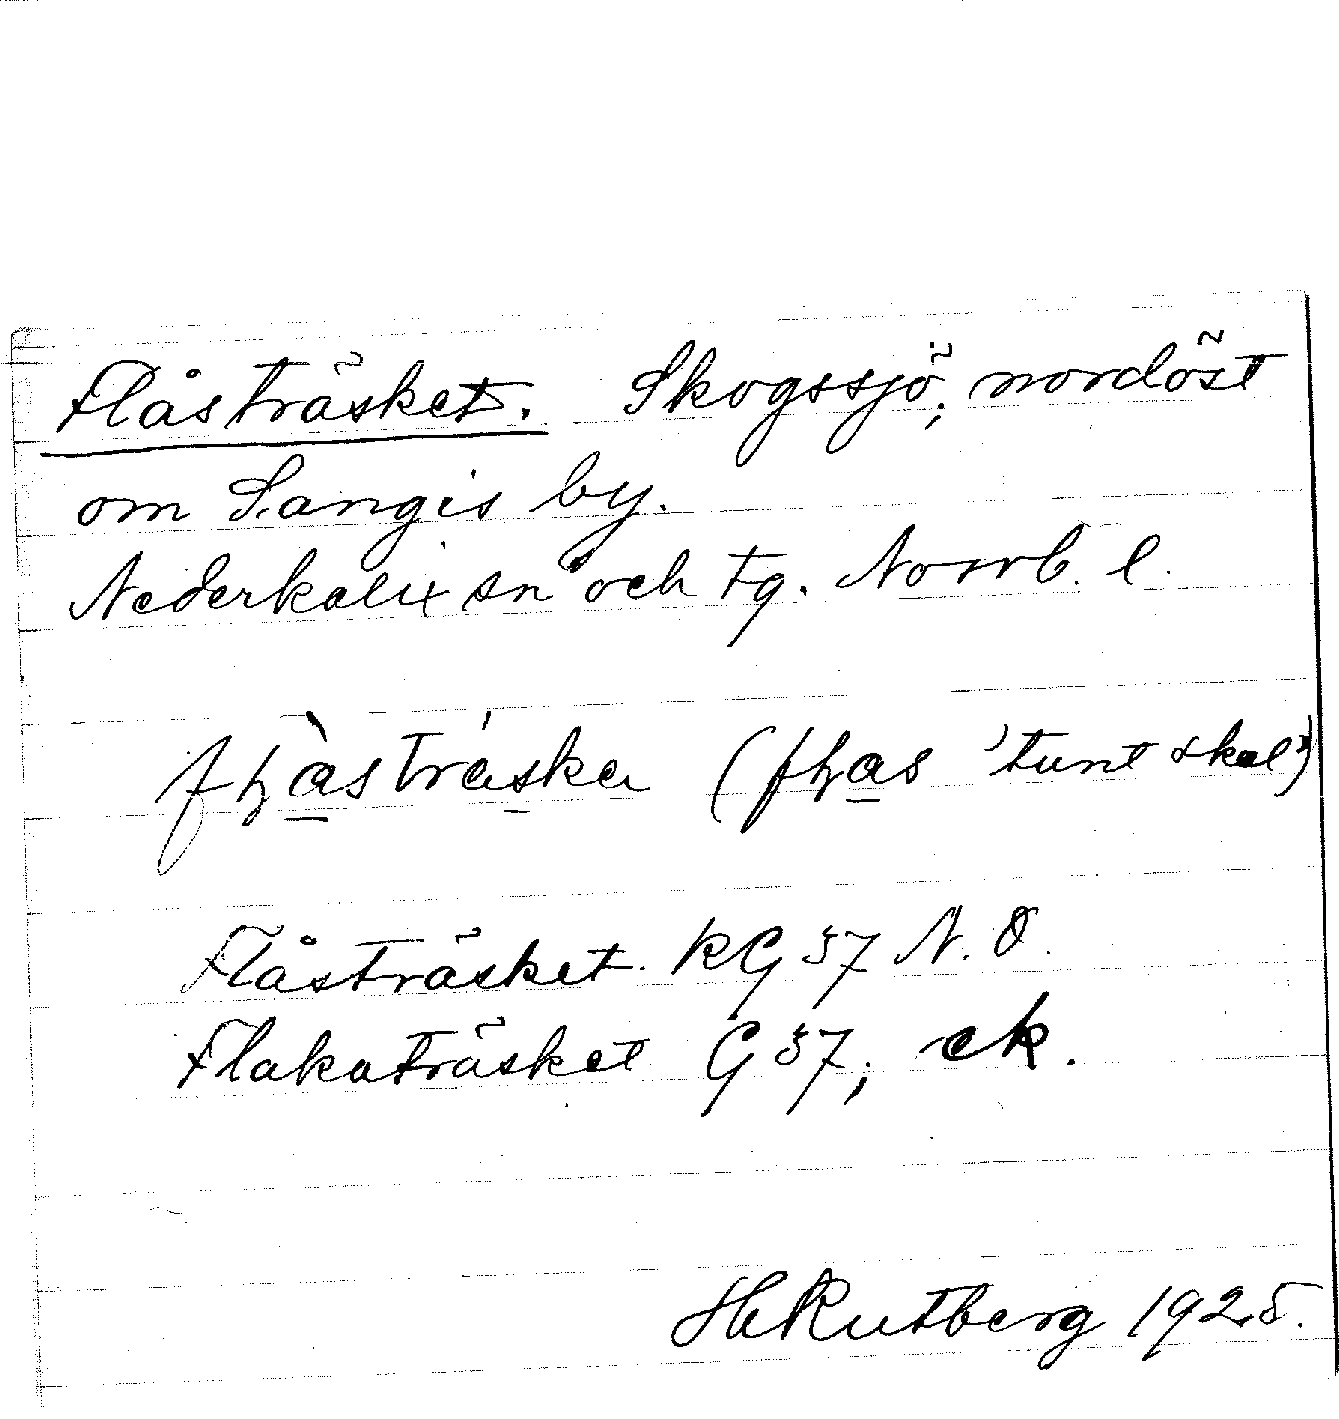 Flåsträsket. Skogssjö, nordöst
om Sangis by.
Nederkalix sn och tg. Norrb. l.
fł̀a̲strä́ska (fła̲s 'tunt skal')
Flåsträsket. KG 37 N. O.
Flakaträsket G 37, ek.
H Rutberg 1925.